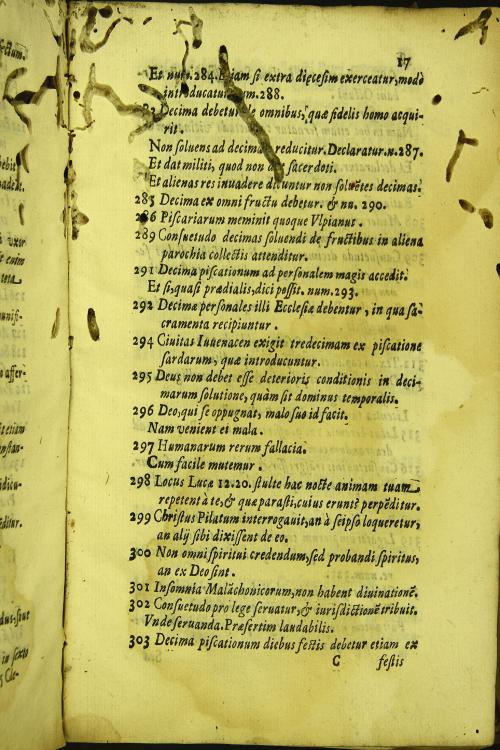 17
Et num. 284. Etiam si extra diœcesim exerceatur, modò
introducatur num. 288.
Decima debetur de omnibus, quæ fidelis homo acqui-
rit.
Non soluens ad decimā reducitur. Declaratur. n. 287.
Et dat militi, quod non dat sacerdoti.
Et alienas res inuadere dicuntur non soluētes decimas.
285 Decima ex omni fructu debetur. & nu. 290.
286 Piscariarum meminit quoque Vlpianus.
289 Consuetudo decimas soluendi de fructibus in aliena
parochia collectis attenditur.
291 Decima piscationum ad personalem magis accedit.
Et si, quasi prædialis, dici possit. num. 293.
292 Decimæ personales illi Ecclesiæ debentur, in qua sa-
cramenta recipiuntur.
294 Ciuitas Iuuenacen exigit tredecimam ex piscatione
sardarum, quæ introducuntur.
295 Deus non debet esse deterioris conditionis in deci-
marum solutione, quàm sit dominus temporalis.
296 Deo, qui se oppugnat, malo suo id facit.
Nam venient et mala.
297 Humanarum rerum fallacia.
Cum facile mutemur.
298 Locus Lucæ 12. 20. stulte hac nocte animam tuam
repetent à te, & quæ parasti, cuius erunt? perpēditur.
299 Christus Pilatum interrogauit, an à seipso loqueretur,
an alij sibi dixissent de eo.
300 Non omni spiritui credendum, sed probandi spiritus,
an ex Deo sint.
301 Insomnia Malāchonicorum, non habent diuinationē.
302 Consuetudo pro lege seruatur, & iurisdictionē tribuit.
Vnde seruanda. Præsertim laudabilis.
303 Decima piscationum diebus festis debetur etiam ex
C festis